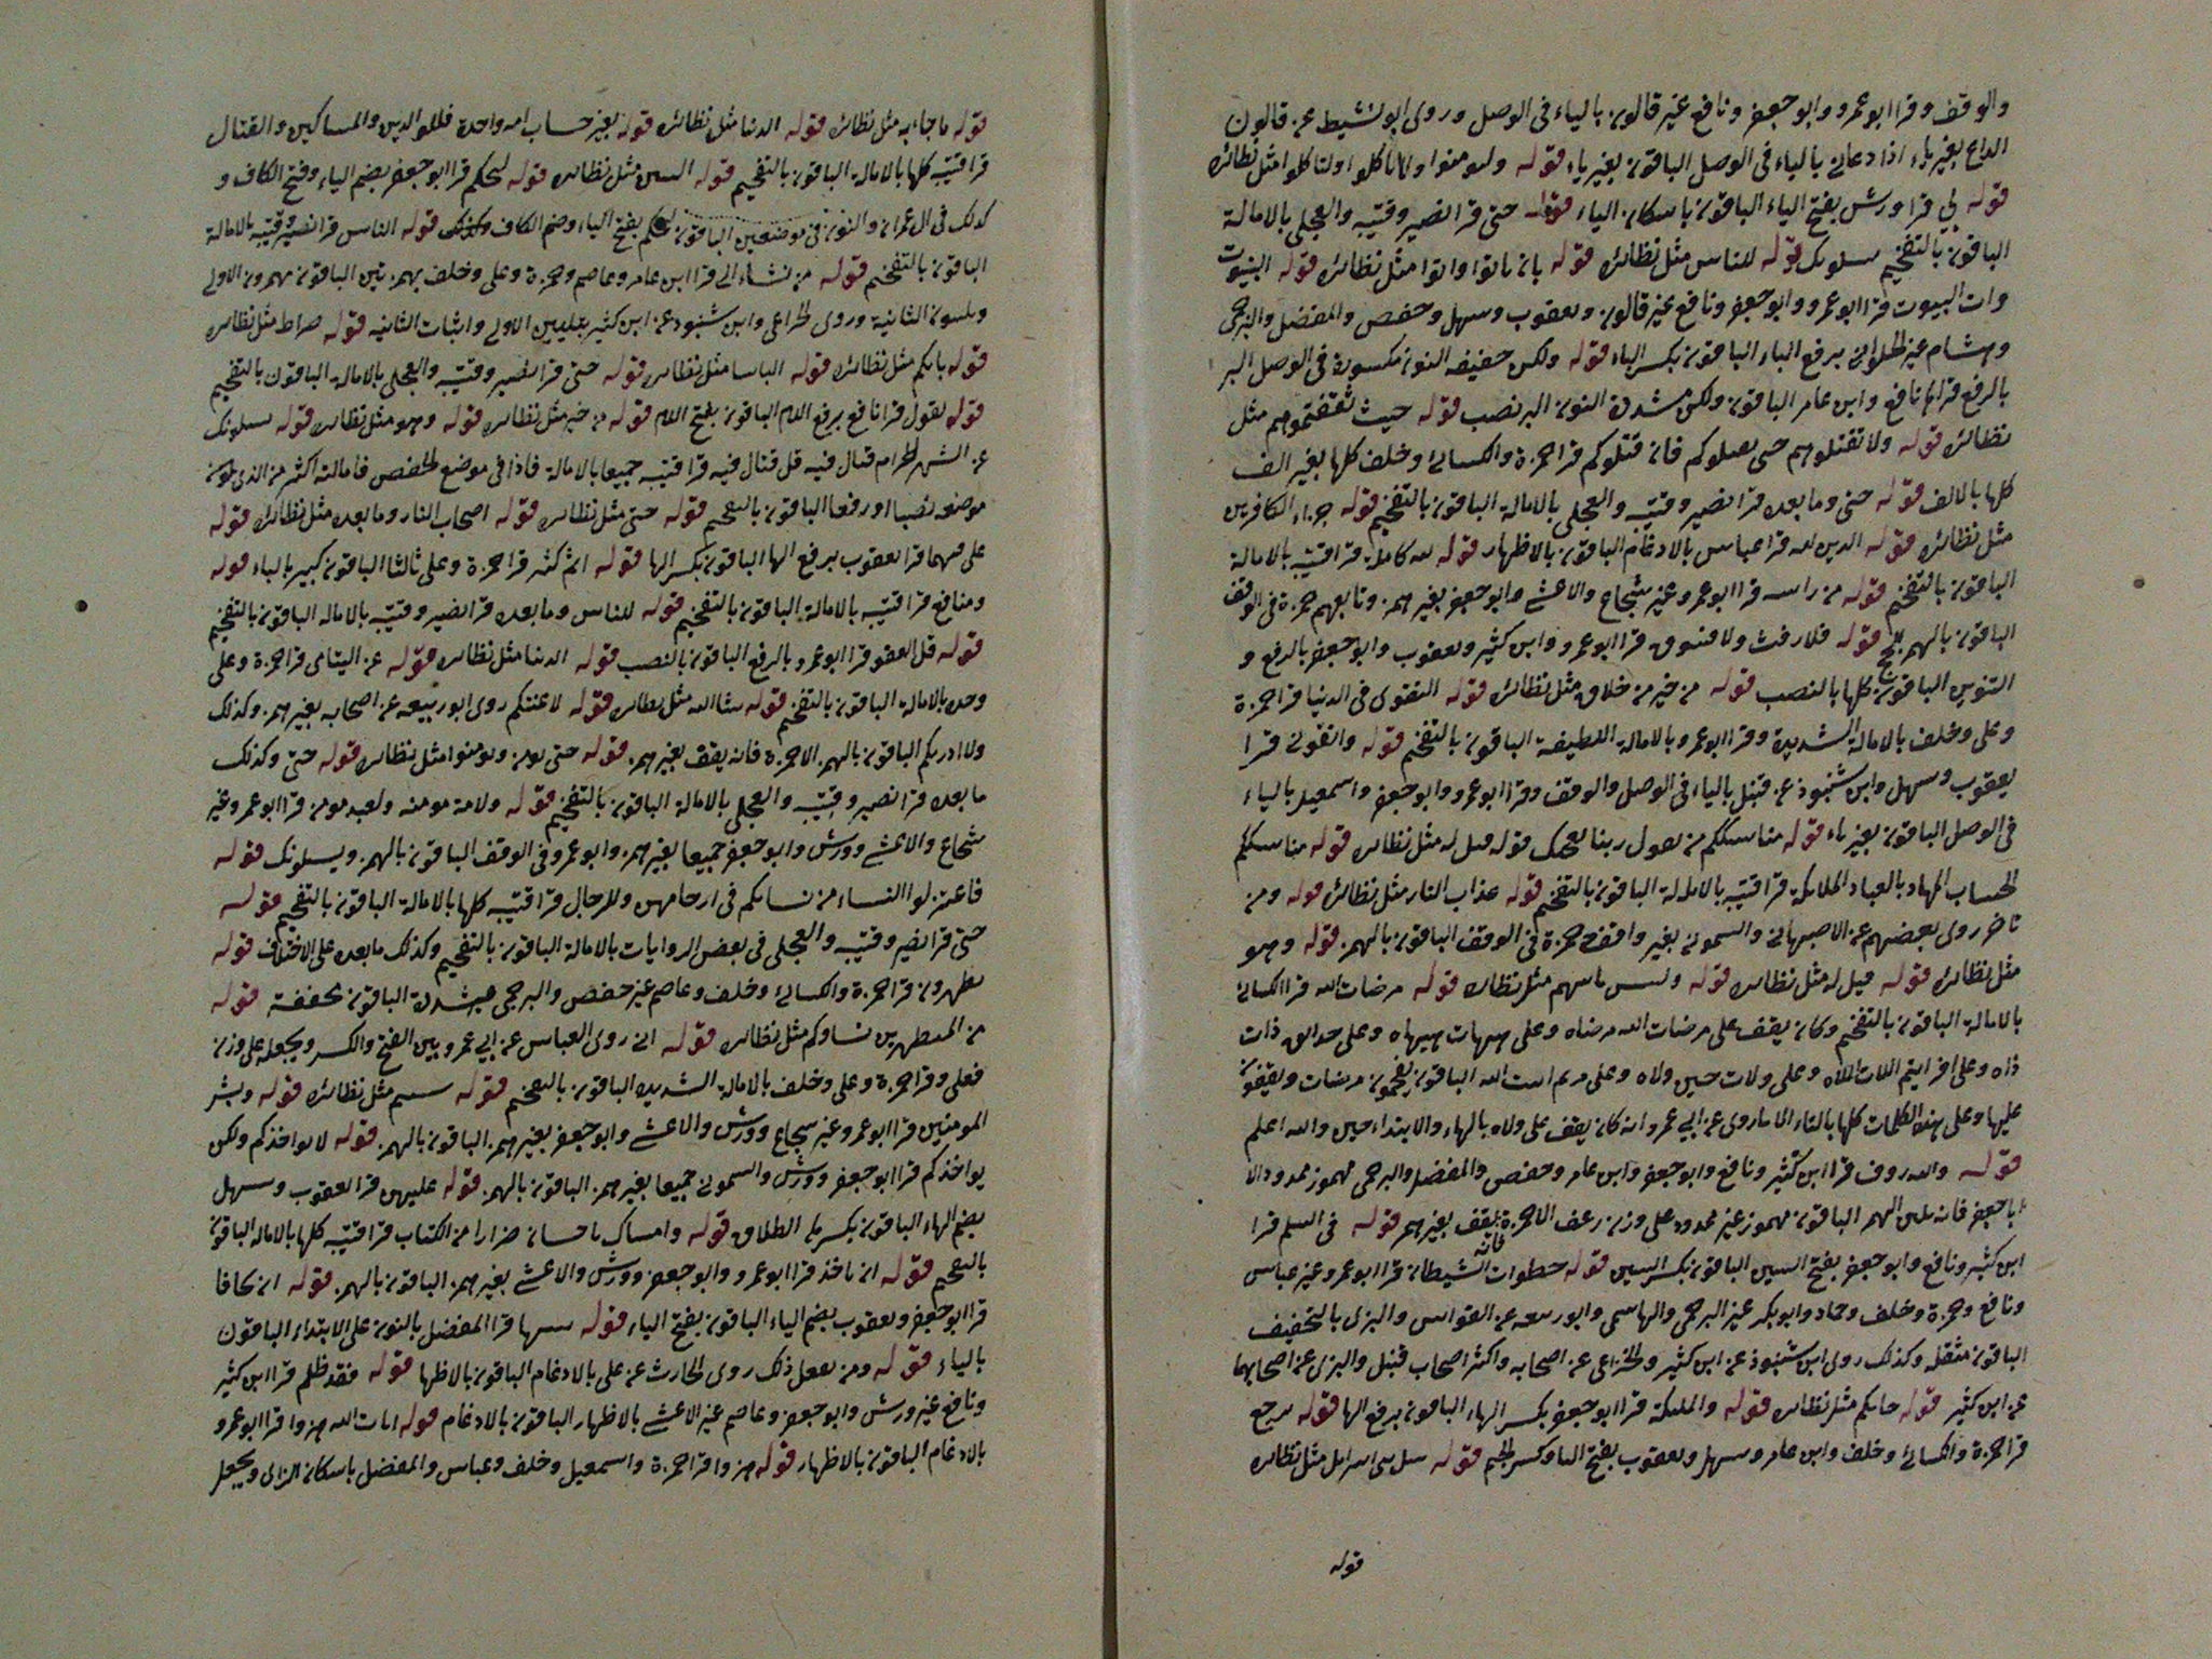 والوقف وقرا ابو عمرو وابو جعفر ونافع غير قالون بالياء في الوصل وروى ابو نشيط عن قالون
الداع بغير ياء اذا دعاني بالياء في الوصل الباقون بغير ياء قوله وليومنوا ولا تاكلوا ولتاكلوا مثل نظائره
قوله بي قرا ورش بفتح الياء الباقون باسكان الياء قوله حتى قرا نصير وقتيبه والعجلي بالامالة
الباقون بالتفخيم يسلونك قوله للناس مثل نظائره قوله بان تاتوا واتوا مثل نظائره قوله البيوت
وات البيوت قرا ابو عمرو وابو جعفر ونافع غير قالون ويعقوب وسهل وحفص والمفضل والبرجمي
وهشام غير الحلواني برفع الباء الباقون بكسر الباء قوله ولكن خفيفه النون مكسورة في الوصل البر
بالرفع قراها نافع وابن عامر الباقون ولكن مشددة النون البر نصب قوله حيث ثقفتموهم مثل
نظائره قوله ولا تقتلوهم حتى يقتلوكم فان قتلوكم قرا حمزة والكسائي وخلف كلها بغير الف
كلها بالالف قوله حتى وما بعده قرا نصير وقتيبه والعجلي بالامالة الباقون بالتفخيم قوله جزاء الكافرين
مثل نظائره قوله الدين لله قرا عباس بالادغام الباقون بالاظهار قوله كاملة قرا قتيبه بالامالة
الباقون بالتفخيم قوله من راسه قرا ابو عمرو غير شجاع والاعشى وابو جعفر بغير همز وتابعهم حمزة في الوقف
الباقون بالهمز قوله فلا رفث ولا فسوق قرا ابو عمرو وابن كثير ويعقوب وابو جعفر بالرفع و
التنوين الباقون كلها بالنصب قوله من خير من خلاق مثل نظائره قوله التقوى في الدنيا قرا حمزة
وعلي وخلف بالامالة الشديدة وقرا ابو عمرو بالامالة اللطيفة الباقون بالتفخيم قوله واتقون قرا
يعقوب وسهل وابن شنبوذ عن قنبل بالياء في الوصل والوقف وقرا ابو عمرو وابو جعفر واسمعيل بالياء
في الوصل الباقون بغير ياء قوله مناسككم من يقول ربنا قوله مثل نظائره قوله مناسككم
الحساب المهاد بالعباد الملائكة قرا قتيبه بالامالة الباقون بالتفخيم قوله عذاب النار مثل نظائره قوله ومن
تاخر روى بعضهم عن الاصبهاني والسموني بغير وافقه حمزة في الوقف الباقون بالهمز قوله وهو
مثل نظائره قوله قيل له مثل نظائره قوله ولبئس مثل نظائره قوله مرضات الله قرا الكسائي
بالامالة الباقون بالتفخيم وكان يقف على مرضات الله مرضاه وعلى هيهات هيهاه وعلى حدائق ذات
ذاه وعلى افرايتم اللات اللاه وعلى ولات حين ولاه وعلى مريم ابنت الله الباقون يفخمون مرضات ويقفون
عليها وعلى هذه الكلمات كلها بالتاء الا ما روى عن ابي عمرو انه كان يقف على ولاه بالهاء والابتداء حين والله اعلم
قوله والله روف قرا ابن كثير ونافع وابو جعفر وابن عامر وحفص والمفضل والبرجمي مهموز ممدود الا
ابا جعفر فانه يلين الهمز الباقون مهموز غير ممدود على وزن رعف الا حمزة فانه يقف بغير همز قوله في السلم قرا
ابن كثير ونافع وابو جعفر بفتح السين الباقون بكسر السين قوله خطوات الشيطان قرا ابو عمرو غير عباس
ونافع وحمزة وخلف وحماد وابو بكر غير البرجمي والهاشمي وابو ربيعه عن القواس والبزي بالتخفيف
الباقون مثقله وكذلك روى ابن شنبوذ عن ابن كثير والخزاعي عن اصحابه واكثر اصحاب قنبل والبزي عن اصحابهما
عن ابن كثير قوله جاءتكم مثل نظائره قوله والملئكة قرا ابو جعفر بكسر الهاء الباقون برفع الها قوله ترجع
قرا حمزة والكسائي وخلف وابن عامر وسهل ويعقوب بفتح التا وكسر الجيم قوله سل بني اسرايل مثل نظائره
قوله
قوله ما جاءته مثل نظائره قوله الدنيا مثل نظائره قوله بغير حساب امه واحدة فللوالدين والمساكين والقتال
قرا قتيبه كلها بالامالة الباقون بالتفخيم قوله النبيين مثل نظائره قوله ليحكم قرا ابو جعفر بضم الياء وفتح الكاف و
كذلك في ال عمران والنور في موضعين الباقون ليحكم بفتح الياء وضم الكاف وكذلك قوله الناس قرا نصير وقتيبه بالامالة
الباقون بالتفخيم قوله من يشاء الى قرا ابن عامر وعاصم وحمزة وعلي وخلف بهمزتين الباقون يهمزون الاولى
ويلينون الثانية وروى الخزاعي وابن شنبوذ عن ابن كثير بتليين الاولى واثبات الثانيه قوله صراط مثل نظائره
قوله ياتكم مثل نظائره قوله الباسا مثل نظائره قوله حتى قرا نصير وقتيبه والعجلي بالامالة الباقون بالتفخيم
قوله يقول قرا نافع برفع اللام الباقون بفتح اللام قوله من خير مثل نظائره قوله وهو مثل نظائره قوله يسلونك
عن الشهر الحرام قتال فيه قل قتال فيه قرا قتيبه جميعا بالامالة فاذا في موضع الخفض فامالته اكثر من الذي يكون
موضعه نصبا او رفعا الباقون بالتفخيم قوله حتى مثل نظائره قوله اصحاب النار وما بعده مثل نظائره قوله
قرا يعقوب برفع الها الباقون بكسر الها قوله اثم كثير قرا حمزة وعلي بالثا الباقون كبير بالباء قوله
ومنافع قرا قتيبه بالامالة الباقون بالتفخيم قوله للناس وما بعده قرا نصير وقتيبه بالاماله الباقون بالتفخيم
قوله قل العفو قرا ابو عمرو بالرفع الباقون بالنصب قوله الدنيا مثل نظائره قوله عن اليتامى قرا حمزة وعلي
وحده بالامالة الباقون بالتفخيم قوله شا الله مثل نظائره قوله لاعنتكم روى ابو ربيعه عن اصحابه بغير همز وكذلك
ولا ادريكم الباقون بالهمز الا حمزة فانه يقف بغير همز قوله حتى يومن ويومنوا مثل نظائره قوله حتى وكذلك
ما بعده قرا نصير وقتيبه والعجلي بالامالة الباقون بالتفخيم قوله ولامة مومنه ولعبد مومن قرا ابو عمرو غير
شجاع والاعشى وورش وابو جعفر جميعا بغير همز وابو عمرو في الوقف الباقون بالهمز ويسلونك قوله
فاعتزلوا النساء من نسائكم في ارحامهن وللرجال قرا قتيبه كلها بالامالة الباقون بالتفخيم قوله
حتى قرا نصير وقتيبه والعجلي في بعض الروايات بالامالة الباقون بالتفخيم وكذلك ما بعده على الاختلاف قوله
يطهرن قرا حمزة والكسائي وخلف وعاصم غير حفص والبرجمي مشددة الباقون مخففة قوله
من المتطهرين نساوكم مثل نظائره قوله انى روى العباس عن ابي عمرو بين الفتح والكسر ويجعله على وزن
فعلى وقرا حمزة وعلي وخلف بالامالة الشديده الباقون بالتفخيم قوله شئتم مثل نظائره قوله وبشر
المومنين قرا ابو عمرو غير شجاع وورش والاعشى وابو جعفر بغير همز الباقون بالهمز قوله لا يواخذكم ولكن
يواخذكم قرا ابو جعفر وورش والسموني جميعا بغير همز الباقون بالهمز قوله عليهن قرا يعقوب وسهل
بضم الهاء الباقون بكسرها الطلاق قوله وامساك باحسان ضرارا من الكتاب قرا قتيبه كلها بالاماله الباقون
بالتفخيم قوله ان تاخذ قرا ابو عمرو وابو جعفر وورش والاعشى بغير همز الباقون بالهمز قوله ان يخافا
قرا ابو جعفر ويعقوب بضم الياء الباقون بفتح الياء قوله يبينها قرا المفضل بالنون على الابتداء الباقون
بالياء قوله ومن يفعل ذلك روى الحارث عن علي بالادغام الباقون بالاظهار قوله فقد ظلم قرا ابن كثير
ونافع غير ورش وابو جعفر وعاصم غير الاعشى بالاظهار الباقون بالادغام قوله ايات الله هزوا قرا ابو عمرو
بالادغام الباقون بالاظهار قوله هزوا قرا حمزة واسمعيل وخلف وعباس والمفضل باسكان الزاى ويجعل